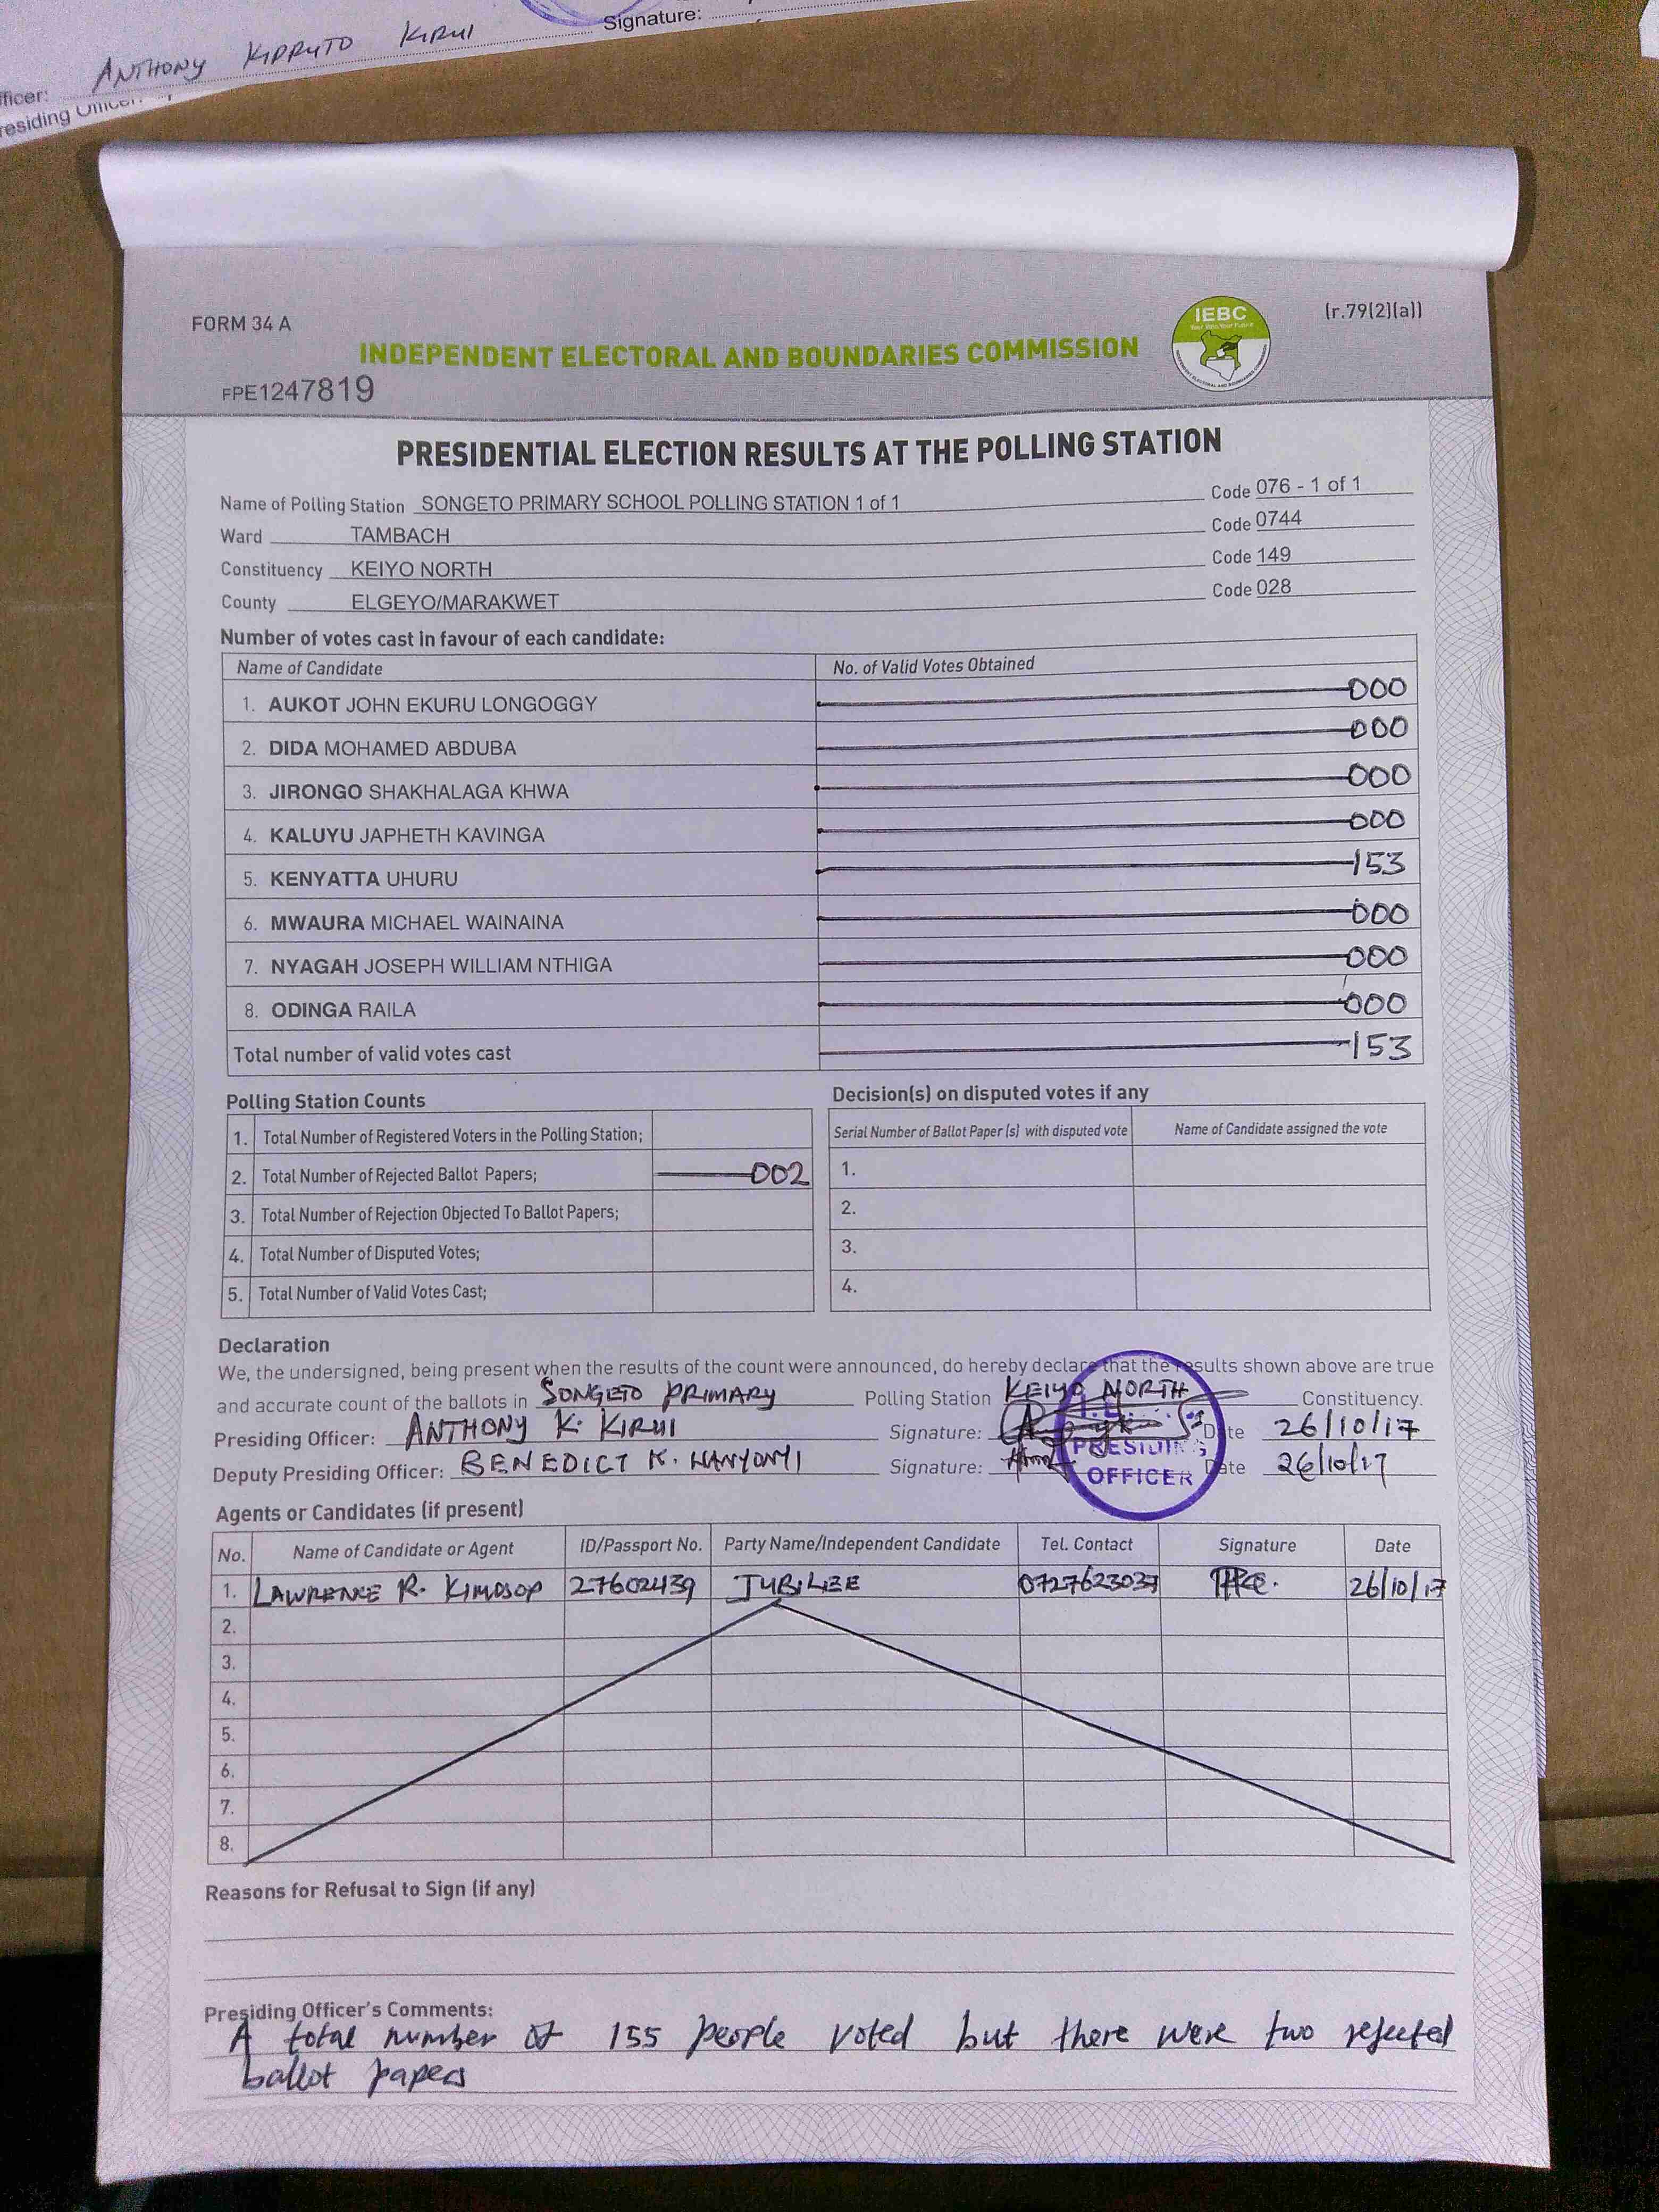 Signature:
ANTHONY KIPRUTO KIRUI
ficer:
residing Officer:
FORM 34 A
(r.79(2)(a))
IEBC
INDEPENDENT ELECTORAL AND BOUNDARIES COMMISSION
FPE1247819
PRESIDENTIAL ELECTION RESULTS AT THE POLLING STATION
Name of Polling Station SONGETO PRIMARY SCHOOL POLLING STATION 1 of 1 Code 076 - 1 of 1
Ward TAMBACH Code 0744
Constituency KEIYO NORTH Code 149
County ELGEYO/MARAKWET Code 028
Number of votes cast in favour of each candidate:
Name of Candidate No. of Valid Votes Obtained
1. AUKOT JOHN EKURU LONGOGGY 000
2. DIDA MOHAMED ABDUBA 000
3. JIRONGO SHAKHALAGA KHWA 000
4. KALUYU JAPHETH KAVINGA 000
5. KENYATTA UHURU 153
6. MWAURA MICHAEL WAINAINA 000
7. NYAGAH JOSEPH WILLIAM NTHIGA 000
8. ODINGA RAILA 000
Total number of valid votes cast 153
Polling Station Counts
1. Total Number of Registered Voters in the Polling Station;
2. Total Number of Rejected Ballot Papers; 002
3. Total Number of Rejection Objected To Ballot Papers;
4. Total Number of Disputed Votes;
5. Total Number of Valid Votes Cast;
Decision(s) on disputed votes if any
Serial Number of Ballot Paper (s) with disputed vote Name of Candidate assigned the vote
1.
2.
3.
4.
Declaration
We, the undersigned, being present when the results of the count were announced, do hereby declare that the results shown above are true
and accurate count of the ballots in SONGETO PRIMARY Polling Station KEIYO NORTH Constituency.
Presiding Officer: ANTHONY K. KIRUI Signature: Date 26/10/17
Deputy Presiding Officer: BENEDICT K. WANYONYI Signature: Date 26/10/17
PRESIDING
OFFICER
Agents or Candidates (if present)
No. Name of Candidate or Agent ID/Passport No. Party Name/Independent Candidate Tel. Contact Signature Date
1. LAWRENCE R. KIMOSOP 27602439 JUBILEE 0727623037 26/10/17
2.
3.
4.
5.
6.
7.
8.
Reasons for Refusal to Sign (if any)
Presiding Officer's Comments:
A total number of 155 people voted but there were two rejected
ballot papers